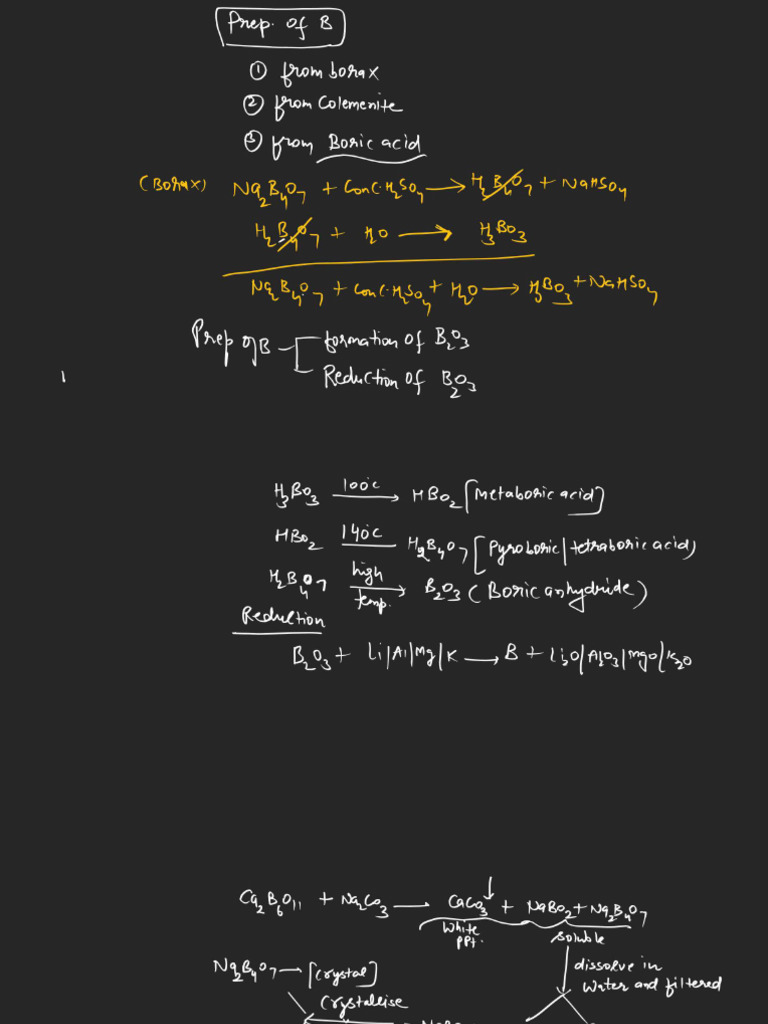 Prep. of B
① from borax
② from Colemenite
③ from Boric acid
(Borax) Na2B4O7 + Conc.H2SO4 → H2B4O7 + NaHSO4
H2B4O7 + H2O → H3BO3
Na2B4O7 + Conc.H2SO4 + H2O → H3BO3 + NaHSO4
Prep of B
formation of B2O3
Reduction of B2O3
H3BO3 100°c → HBO2 [Metaboric acid]
HBO2 140°c H2B4O7 [Pyroboric/tetraboric acid)
H2B4O7 high temp. → B2O3 (Boric anhydride)
Reduction
B2O3 + Li/Al/Mg/K → B + Li3O/Al2O3/MgO/K2O
Ca2B6O11 + Na2CO3 — CaCO3 ↓ + NaBO2 + Na2B4O7
White PPt.
soluble
dissolve in
Water and filtered
Na2B4O7 — [crystal]
Crystallise